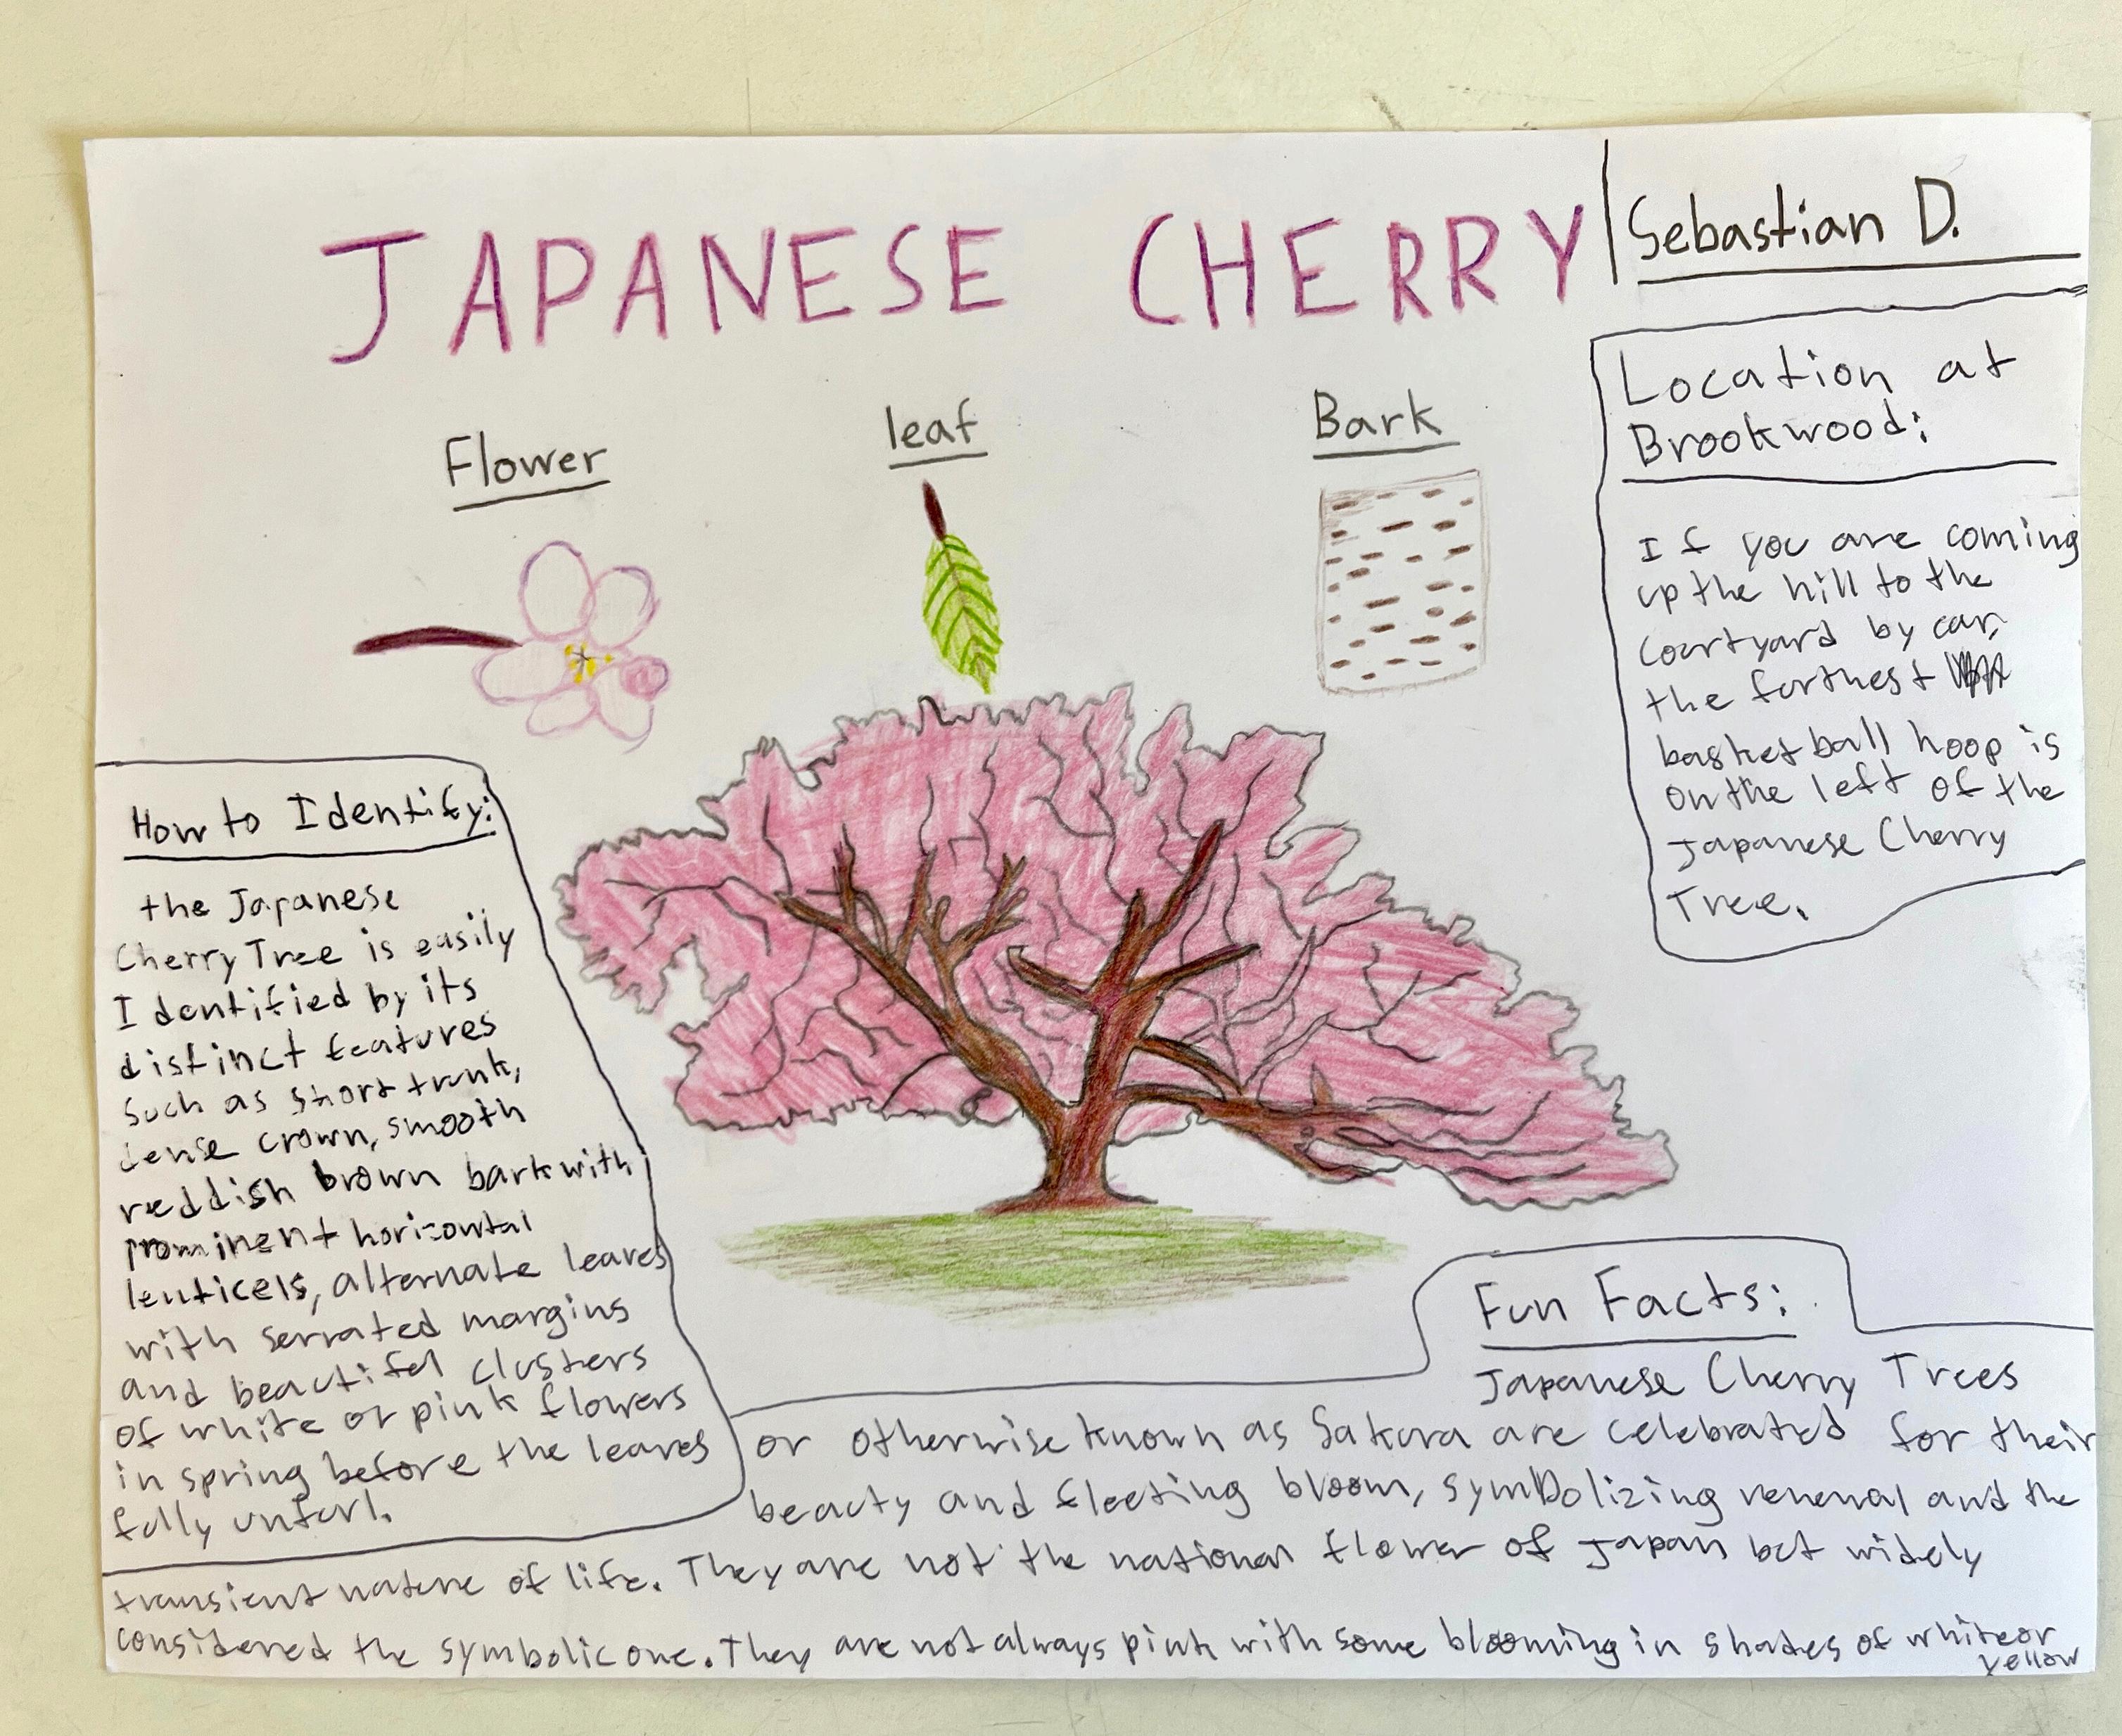 JAPANESE CHERRY
Sebastian D.
Flower
leaf
Bark
Location at
Brookwood:
If you are coming
up the hill to the
courtyard by car,
the furthest
basketball hoop is
on the left of the
Japanese Cherry
Tree.
How to Identify:
the Japanese
Cherry Tree is easily
Identified by its
distinct features
such as short trunk,
dense crown, smooth
reddish brown bark with
prominent horizontal
lenticels, alternate leaves
with serrated margins
and beautiful clusters
of white or pink flowers
in spring before the leaves
fully unfurl.
Fun Facts:
Japanese Cherry Trees
or otherwise known as Sakura are celebrated for their
beauty and fleeting bloom, symbolizing renewal and the
transient nature of life. They are not the national flower of Japan but widely
considered the symbolic one. They are not always pink with some blooming in shades of white or
yellow